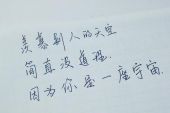 羡慕别人的天空
简直没道理.
因为你是一座宇宙.